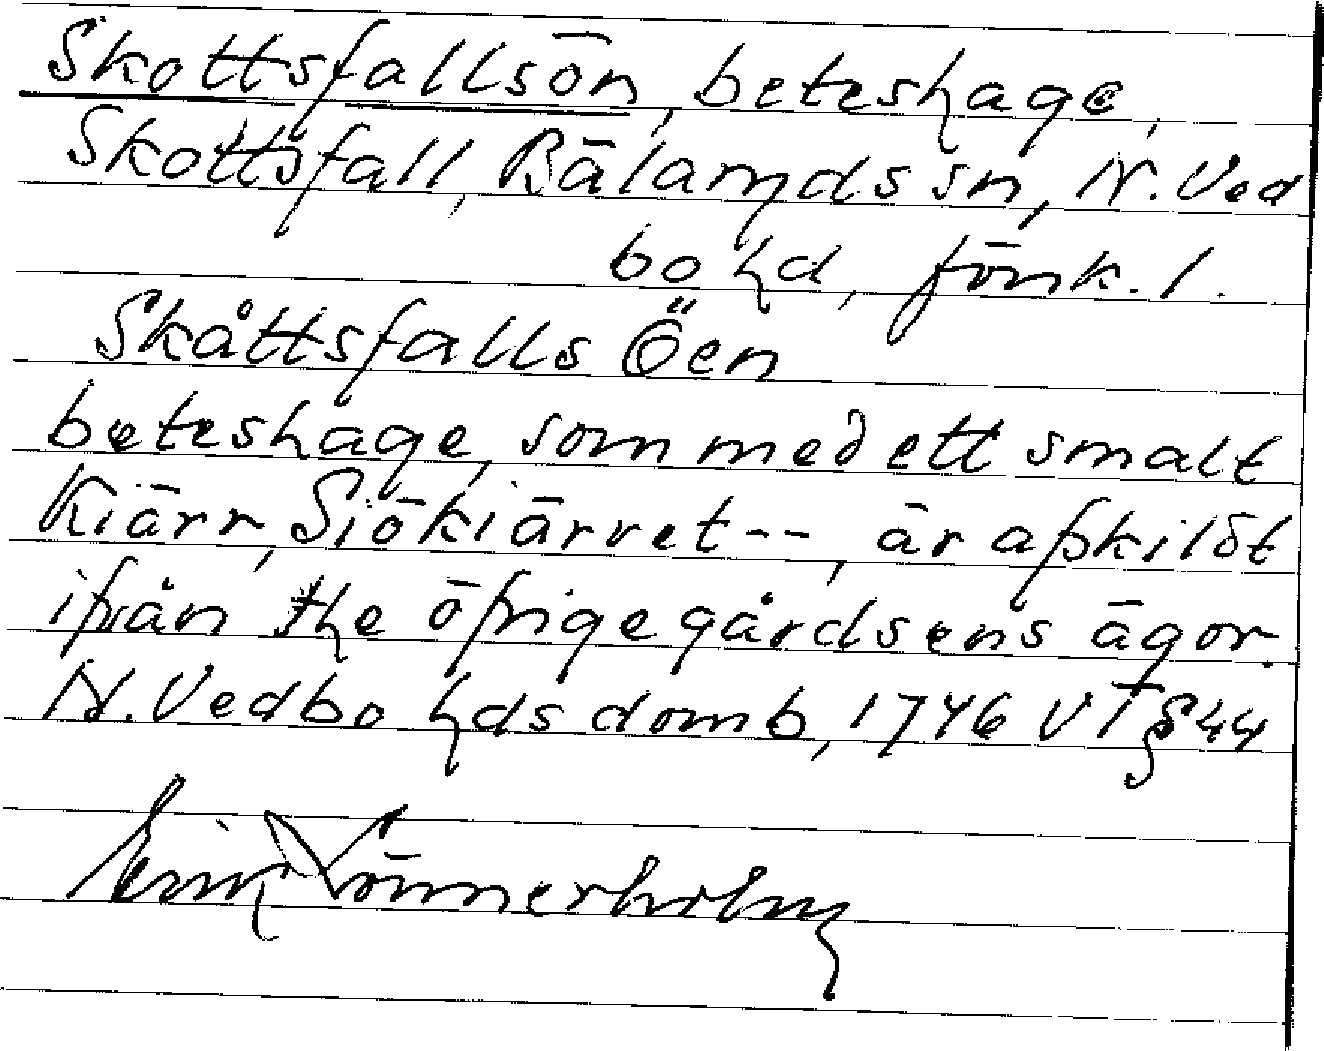 Skottsfallsön, beteshage,
Skottsfall, Bälaryds sn, N. Ved
bo hd, Jönk. l.
Skåttsfalls Öen
beteshage, som med ett smalt
Kiärr, Siökiärret --, är afskildt
ifrån the öfrige gårdsens ägor.
N. Vedbo hds domb, 1746 VT § 44
Erik Lönnerholm